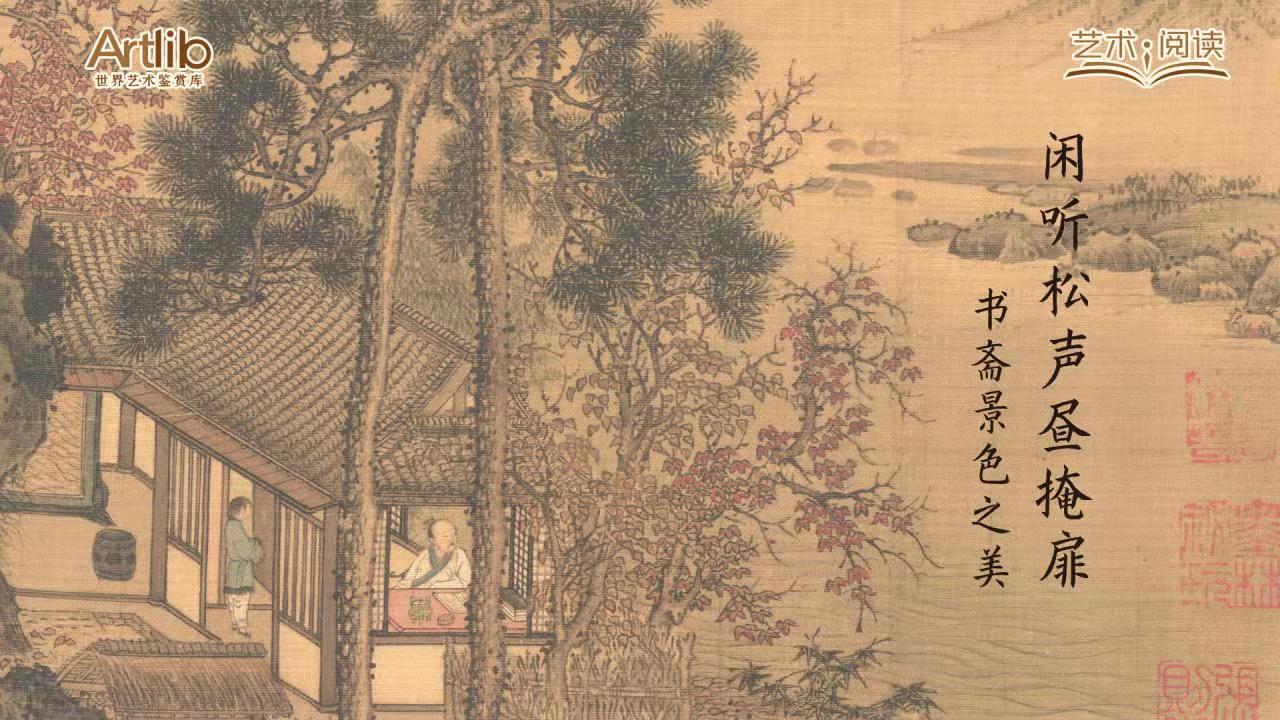 Artlib
世界艺术鉴赏库
艺术;阅读
闲听松声昼掩扉
书斋景色之美